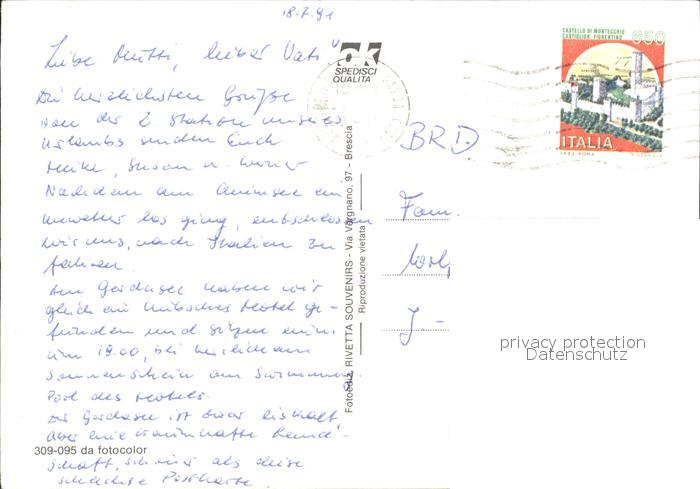 18.7.91
Liebe Mutti, lieber Vati
Die herzlichsten Grüße
von der 2 Station unseres
Urlaubs senden Euch
Heike, Susan u. Werner
Nachdem am ein
Unwetter los ging, entschlossen
wir uns, nach Italien zu
fahren.
Am Gardasee haben wir
gleich ein hübsches Hotel ge-
funden und sitzen nun,
um 19.00, bei herrlichem
Sonnenschein am Swimming
Pool des Hotels.
Der Gardasee ist zwar eiskalt
aber eine traumhafte Land-
schaft, schöner als diese
schlechte Postkarte.
309-095 da fotocolor
SPEDISCI
QUALITA
Fotoediz. RIVETTA SOUVENIRS - Via Vargnano, 97 - Brescia
Riproduzione vietata
CASTELLO DI MONTECCHIO
CASTIGLION FIORENTINO
650
ITALIA
I.P.Z.S. ROMA
BRD
Fam.
J -
privacy protection
Datenschutz